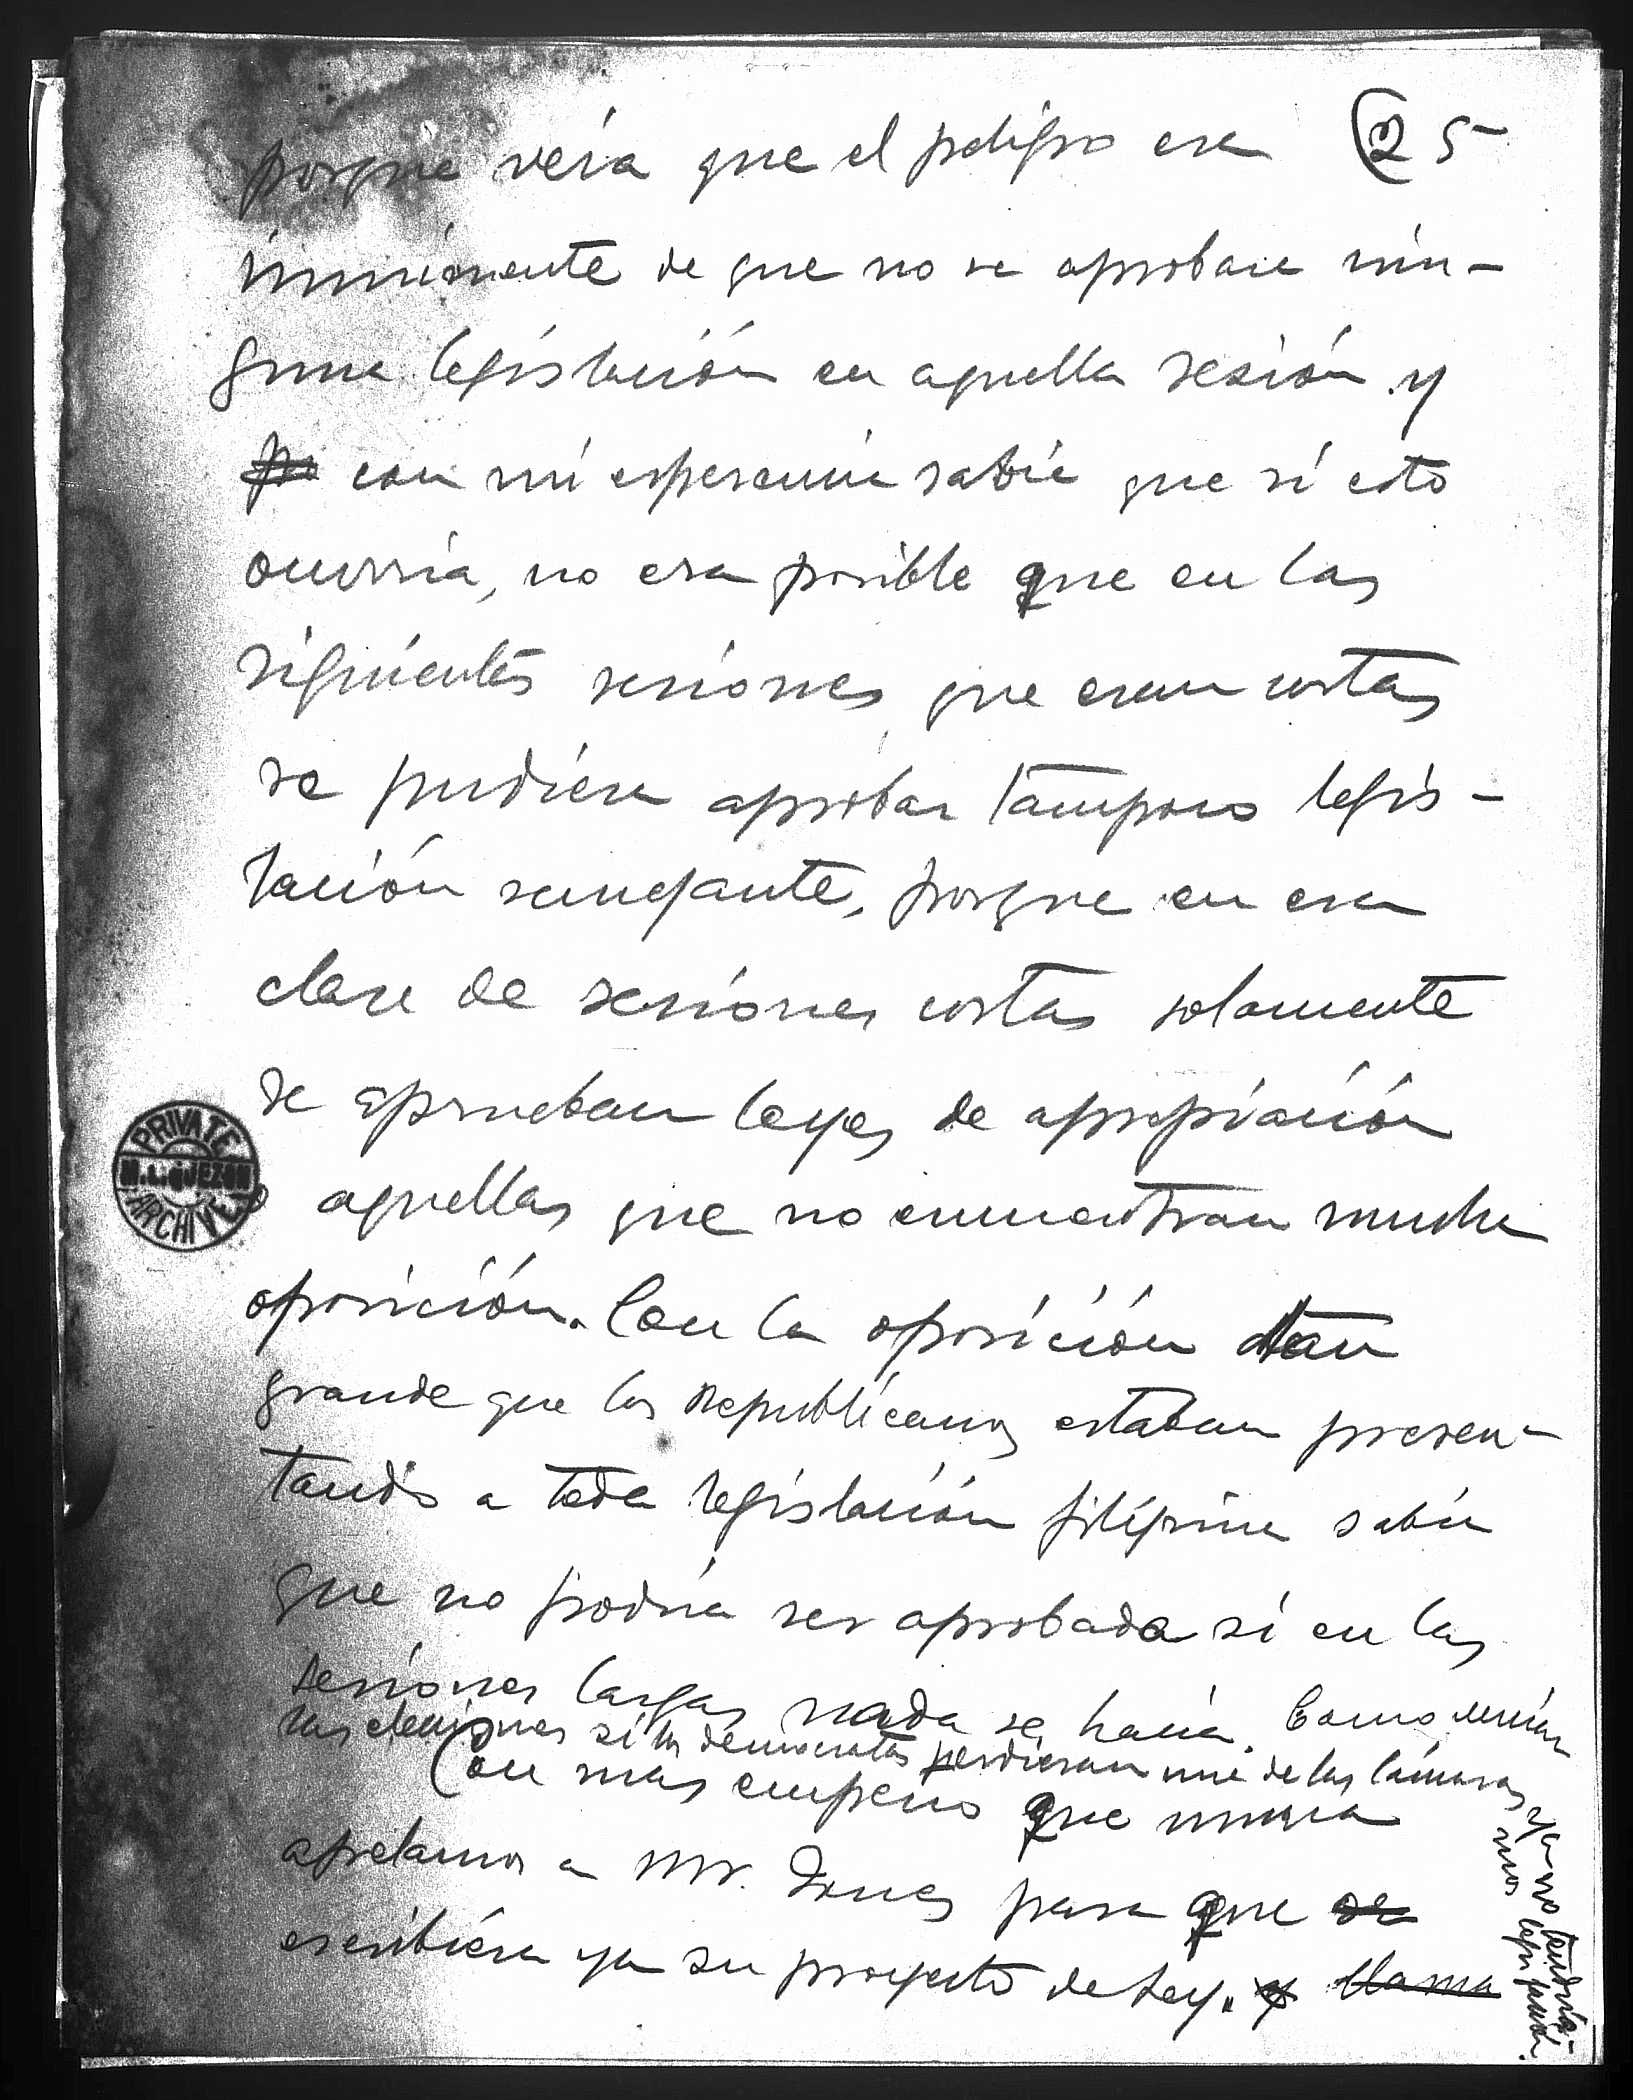 25
porque veía que el peligro era
inminente de que no se aprobara nin-
guna legislación en aquella sesión y
po con mi esperiencia sabía que si esto
ocurría, no era posible que en las
siguientes sesiones que eran cortas
se pudiera aprobar tampoco legis-
lación semejante, porque en esa
clase de sesiones cortas solamente
se aprueban leyes de apropiación
PRIVATE
M.L. QUEZON
ARCHIVE
o aquellas que no encuentran mucha
oposición. Con la oposición tan
grande que los Republicanos estaban presen-
tando a toda legislación filipina sabía
que no podría ser aprobada si en las
sesiones largas nada se hacía. Como venían
las elecciones si los democratas perdieran una de las Cámaras
ya no tendría-
mos legislación.
Con mas empeño que nunca
apelamos a Mr. Jones para que se
escribiera ya su proyecto de Ley. y llama